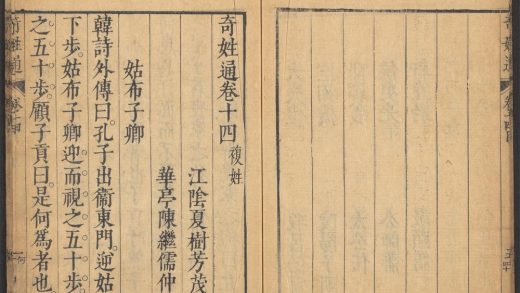 奇姓通卷十四 複姓
江陰夏樹芳茂
華亭陳繼儒仲
姑布子卿
韓詩外傳曰孔子出衞東門。逆姑
下步姑布子卿迎而視之五十步
之五十步。顧子貢曰。是何爲者也
奇姓通